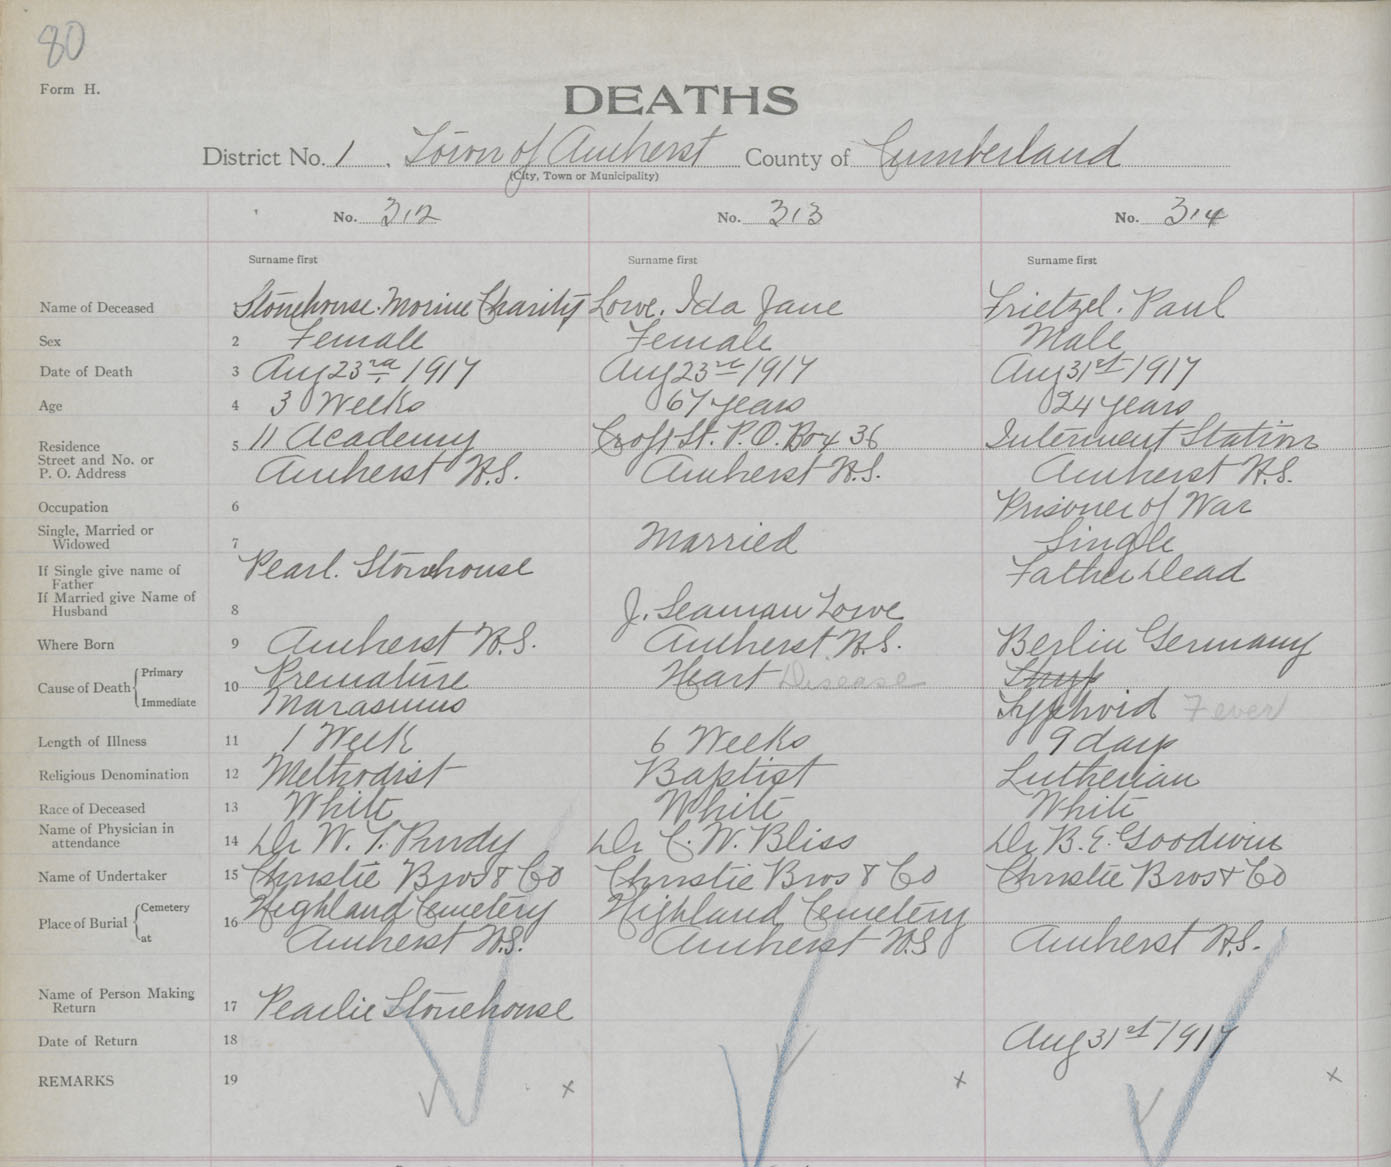 80
Form H.
DEATHS
District No. 1 . Town of Amherst County of Cumberland
(City, Town or Municipality)
No. 312 No. 313 No. 314
Surname first Surname first Surname first
Name of Deceased 1 Stonehouse. Morine Charity Lowe. Ida Jane Frietzel. Paul
Sex 2 Female Female Male
Date of Death 3 Aug 23rd 1917 Aug 23rd 1917 Aug 31st 1917
Age 4 3 Weeks 67 years 24 years
Residence 5 11 Academy Croft St. P.O. Box 36 Internment Station
Street and No. or
P. O. Address Amherst N.S. Amherst N.S. Amherst N.S.
Occupation 6 Prisoner of War
Single, Married or
Widowed 7 Married Single
If Single give name of
Father Pearl. Stonehouse Father dead
If Married give Name of
Husband 8 J. Seaman Lowe
Where Born 9 Amherst N.S. Amherst N.S. Berlin Germany
Cause of Death Primary 10 Premature Heart Disease
Immediate Marasmus Typhoid Fever
Length of Illness 11 1 Week 6 Weeks 9 days
Religious Denomination 12 Methodist Baptist Lutherian
Race of Deceased 13 White White White
Name of Physician in
attendance 14 Dr W. T. Purdy Dr C. W. Bliss Dr B. E. Goodwin
Name of Undertaker 15 Christie Bros & Co Christie Bros & Co Christie Bros & Co
Place of Burial Cemetery 16 Highland Cemetery Highland Cemetery
at Amherst N.S. Amherst N.S Amherst N.S.
Name of Person Making
Return 17 Pearlie Stonehouse
Date of Return 18 Aug 31st 1917
REMARKS 19 x x x